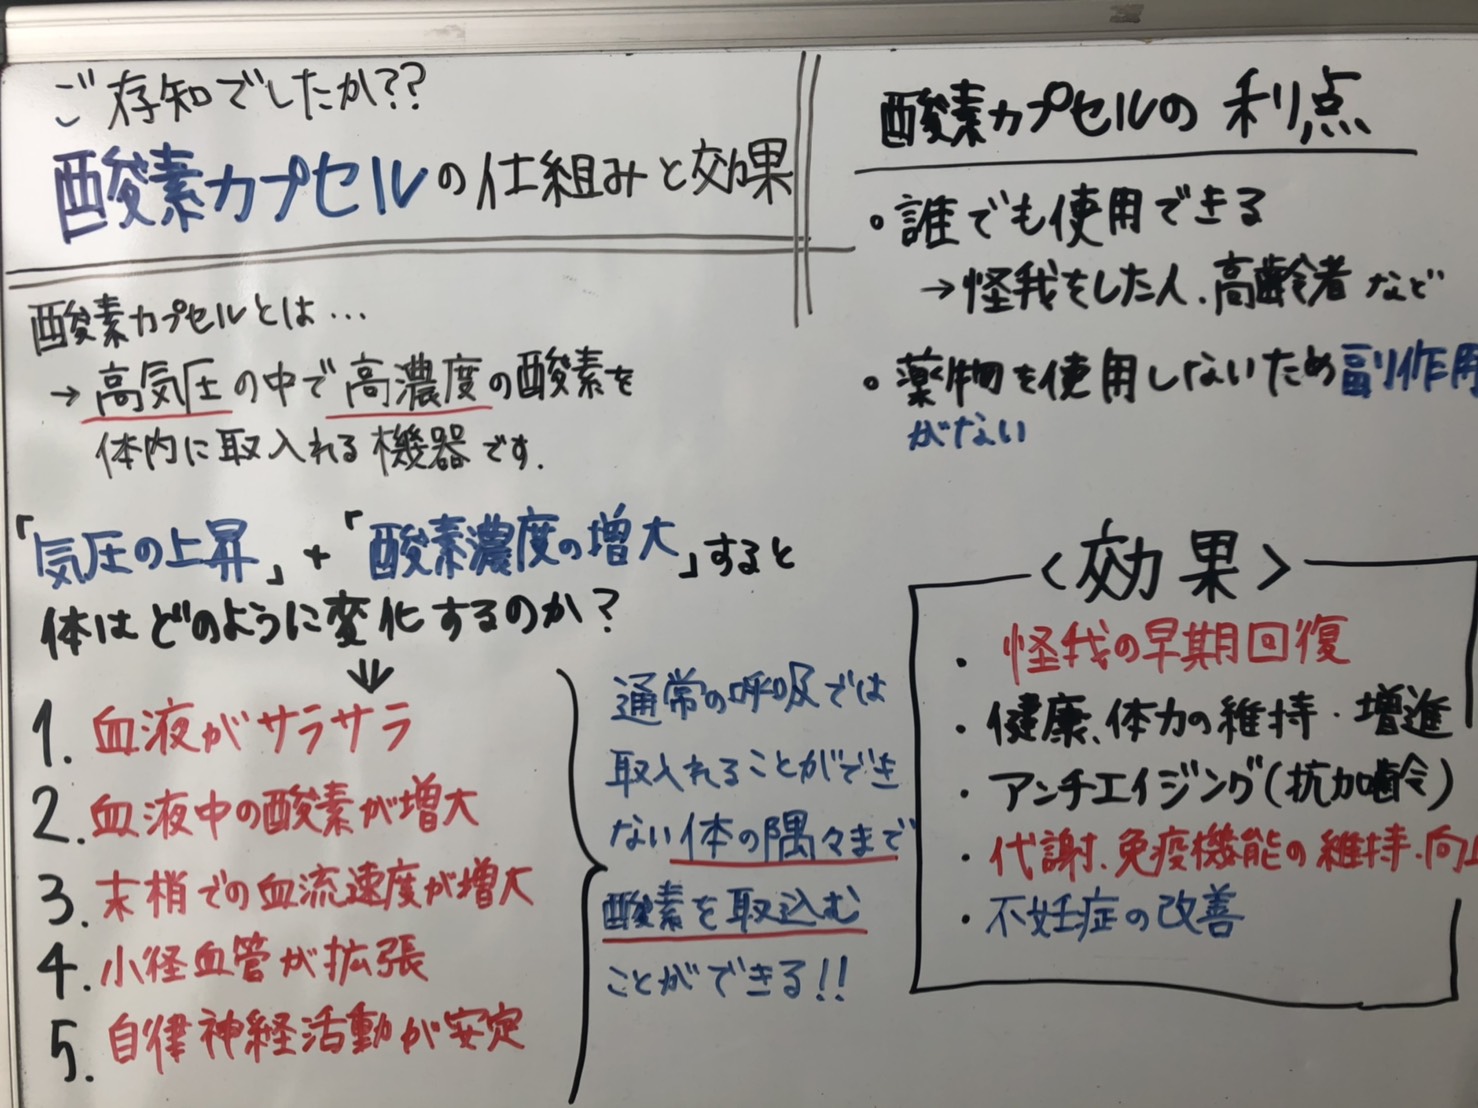 ご存知でしたか??
酸素カプセルの仕組みと効果
酸素カプセルとは…
→高気圧の中で高濃度の酸素を
体内に取入れる機器です.
「気圧の上昇」+「酸素濃度の増大」すると
体はどのように変化するのか?
1. 血液がサラサラ
2. 血液中の酸素が増大
3. 末梢での血流速度が増大
4. 小径血管が拡張
5. 自律神経活動が安定
通常の呼吸では
取入れることができ
ない体の隅々まで
酸素を取込む
ことができる!!
酸素カプセルの利点
・誰でも使用できる
→怪我をした人、高齢者など
・薬物を使用しないため副作用
がない
<効果>
・怪我の早期回復
・健康、体力の維持・増進
・アンチエイジング(抗加齢)
・代謝、免疫機能の維持・向上
・不妊症の改善